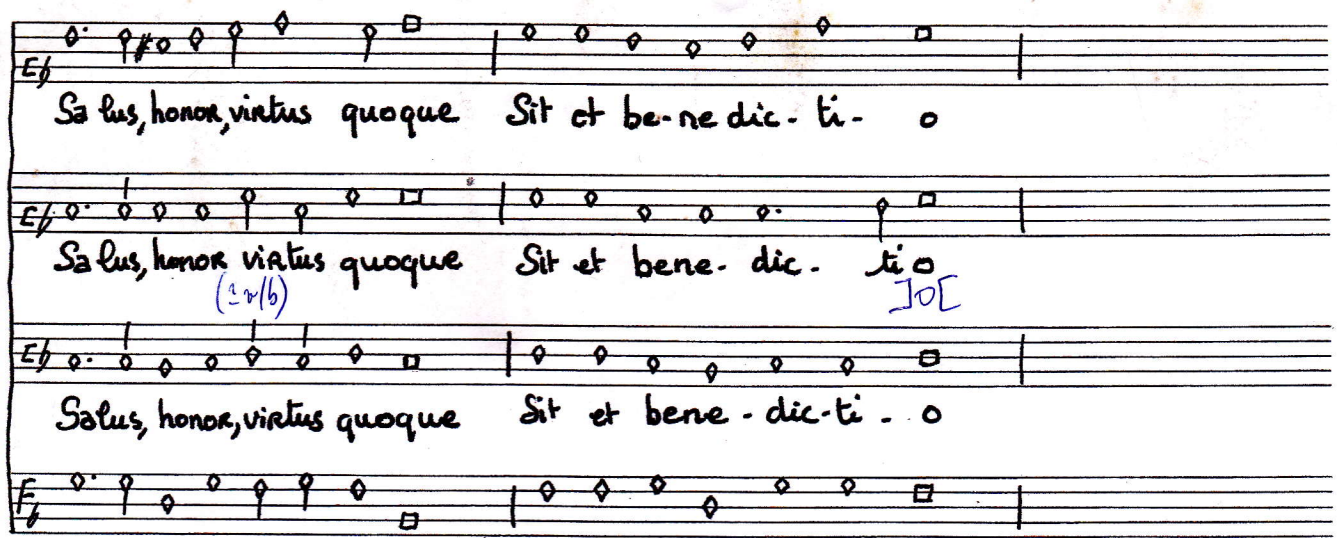 Sa lus, honor, virtus quoque Sit et be-ne dic-ti- o
Sa lus, honor virtus quoque Sit et bene-dic-ti o
Salus, honor, virtus quoque Sit et bene-dic-ti-o